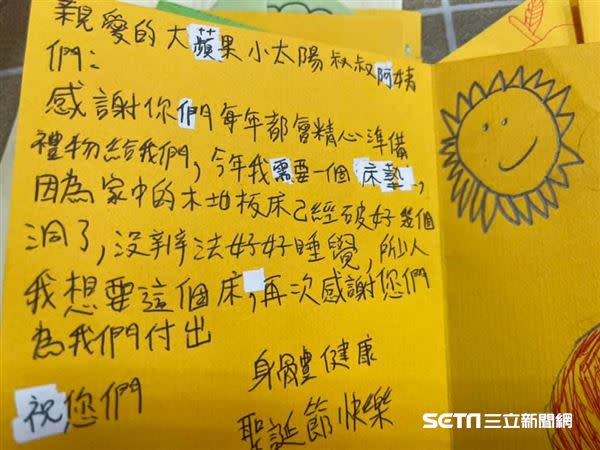 親愛的大蘋果小太陽叔叔阿姨
們：
感謝你們每年都會精心準備
禮物給我們，今年我需要一個床墊，
因為家中的木地板床已經破好幾個
洞了，沒辦法好好睡覺，所以
我想要這個床，再次感謝您們
為我們付出
祝您們
身體健康
聖誕節快樂
SETN 三立新聞網